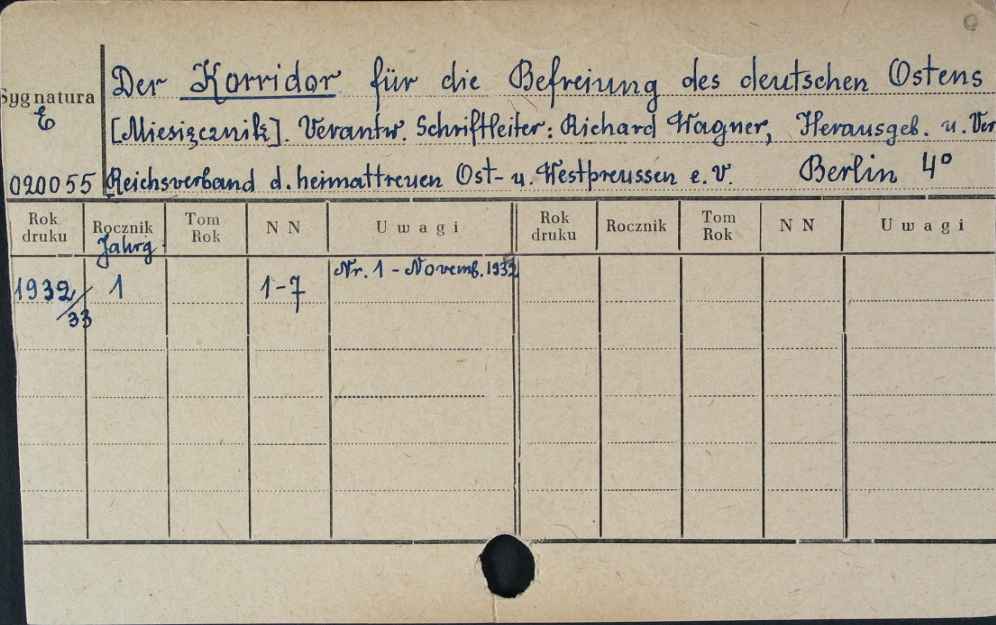 Der Korridor für die Befreiung des deutschen Ostens
Sygnatura
E
[Miesięcznik]. Verantw. Schriftleiter: Richard Wagner, Herausgeb. u. Ver
020055 Reichsverband d. heimattreuen Ost- u. Westpreussen e. V. Berlin 4°
Rok druku Rocznik Tom Rok N N Uwagi Rok druku Rocznik Tom Rok N N Uwagi
Jahrg.
1932/33 1 1-7 Nr. 1 - Novemb. 1932